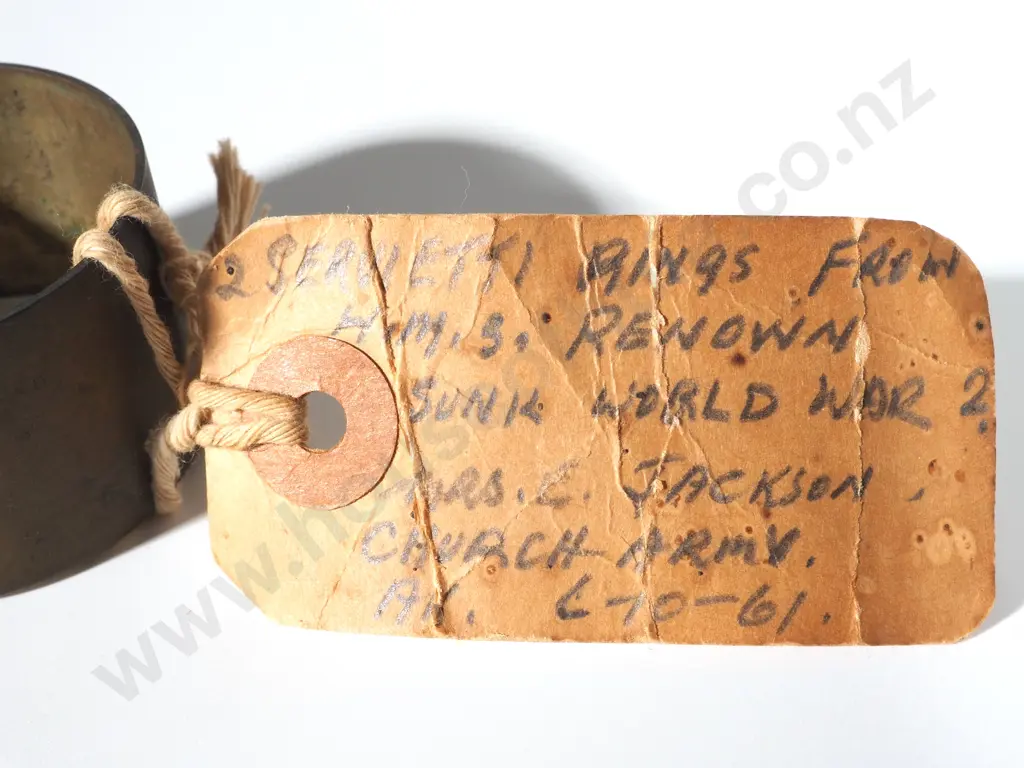 2 SERVIETTI RINGS FROM
H.M.S. RENOWN
SUNK WORLD WAR 2.
MRS. C. JACKSON.
CHURCH ARMY.
AK. 6-10-61.